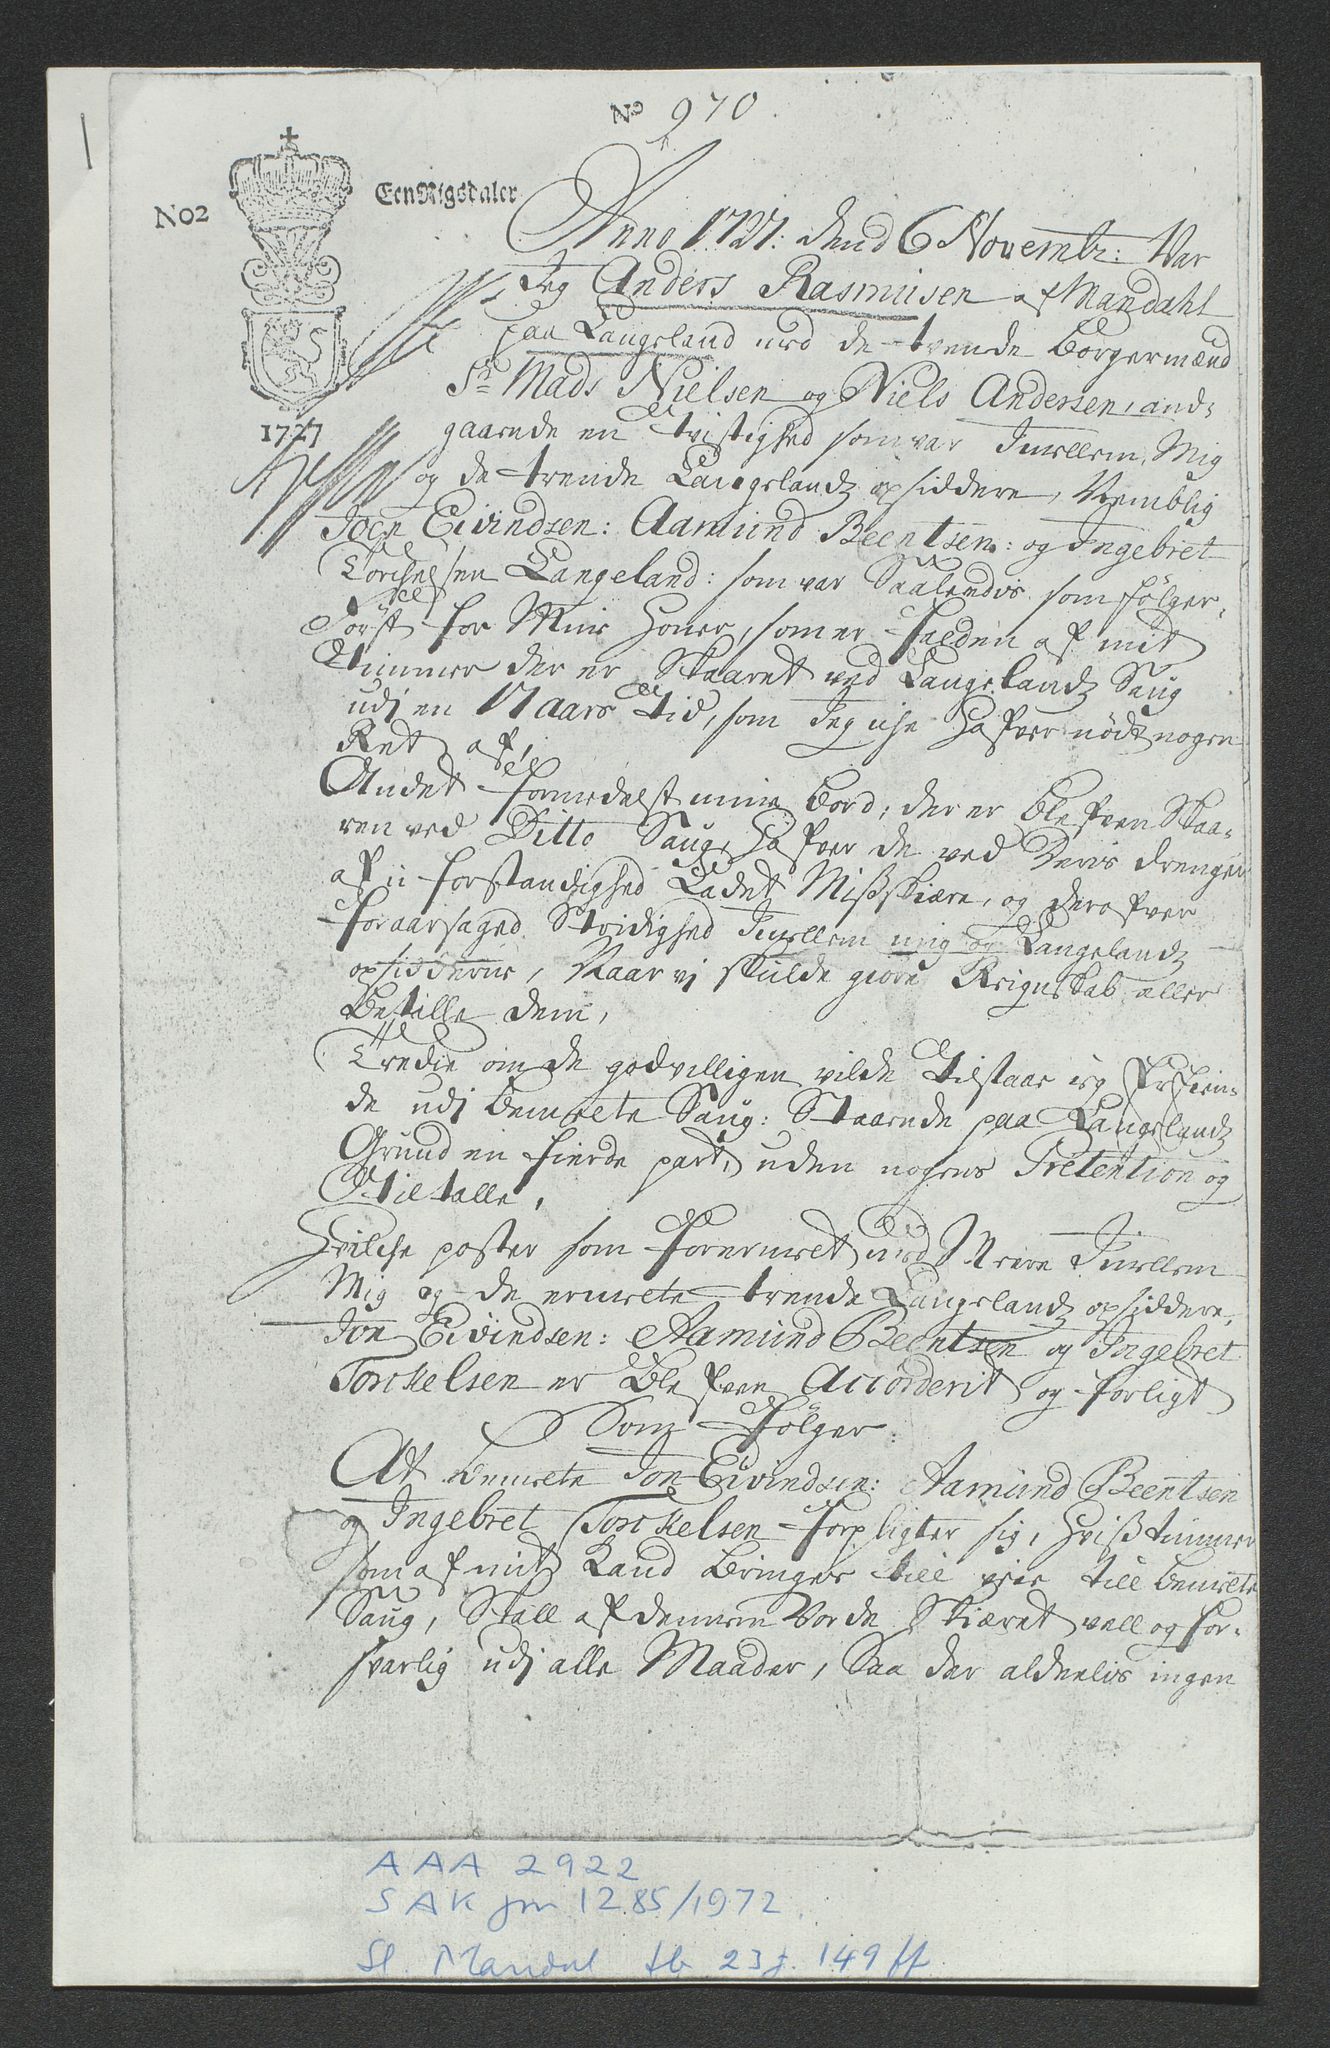 No 970
No2
Een Rigsdaler
1727
Anno 1727: dend 6 Novembr: Var
Jeg Anders Rasmusen af Mandahl
paa Langeland med de tvende Borgermænd
Sr Mads Nielsen og Niels Andersen, and-
gaaende en Tvistighed som var Imellem Mig
og de trende Langelandz opsiddere, Nemblig
Joen Eivindsen: Aamund Beentsen: og Ingebret
Torchelsen Langeland: som var Saaledis som følger,
Først for Mine Honer, som er falden af mit
Timmer der er Skaaret ved Langelandz Saug
udj en 17 aars Tid, som Jeg iche Hafver nødt nogen
Ret af,
Andet formedelst mine Bord, der er blefven Skaa-
ren ved Ditto Saug, Hafver de ved Deris drenger
af u-forstandighed Ladet Mißskiære, og derofver
foraarsaged Stridighed Imellem mig og Langelandz
opsidderne, Naar vj skulde giøre Reignskab eller
Betalle dem,
Tredie om de godvilligen vilde Tilstaae ieg
de udj bemelte Saug: Staaende paa Langelandz
Grund en fierde part, uden nogens Pretention og
Tiltalle,
Hvilche poster som formelt med Meere Imellem
Mig og de ermelte trende Langelandz opsiddere,
Jon Eivindsen: Aamund Beentsen og Ingebret
Torckelsen er Blefven Accorderit og forligt
Som Følger
At bemelte Jon Eivindsen: Aamund Beentsen
og Ingebret Torckelsen forpligter sig, Hviß timmer
som af mit Land Bringes till veie till bemelte
Saug, Skall af dennem Vorde Skiæret vell og for-
svarlig udj alle Maader, Saa der aldeelis ingen
AAA 2922
SAK jnr 1285/1972.
Sl. Mandal tb 23 f. 149 ff